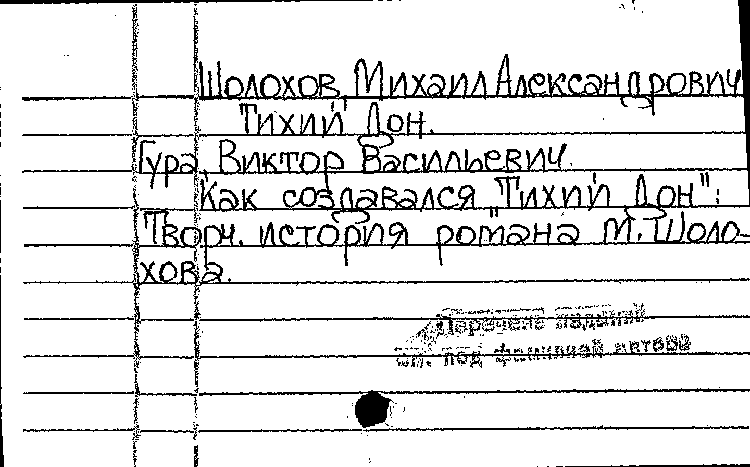 Шолохов, Михаил Александрович
"Тихий Дон.
Гура, Виктор Васильевич.
Как создавался "Тихий Дон":
Творч. история романа М. Шоло-
хова.
Перечень изданий
см. под фамилией автора